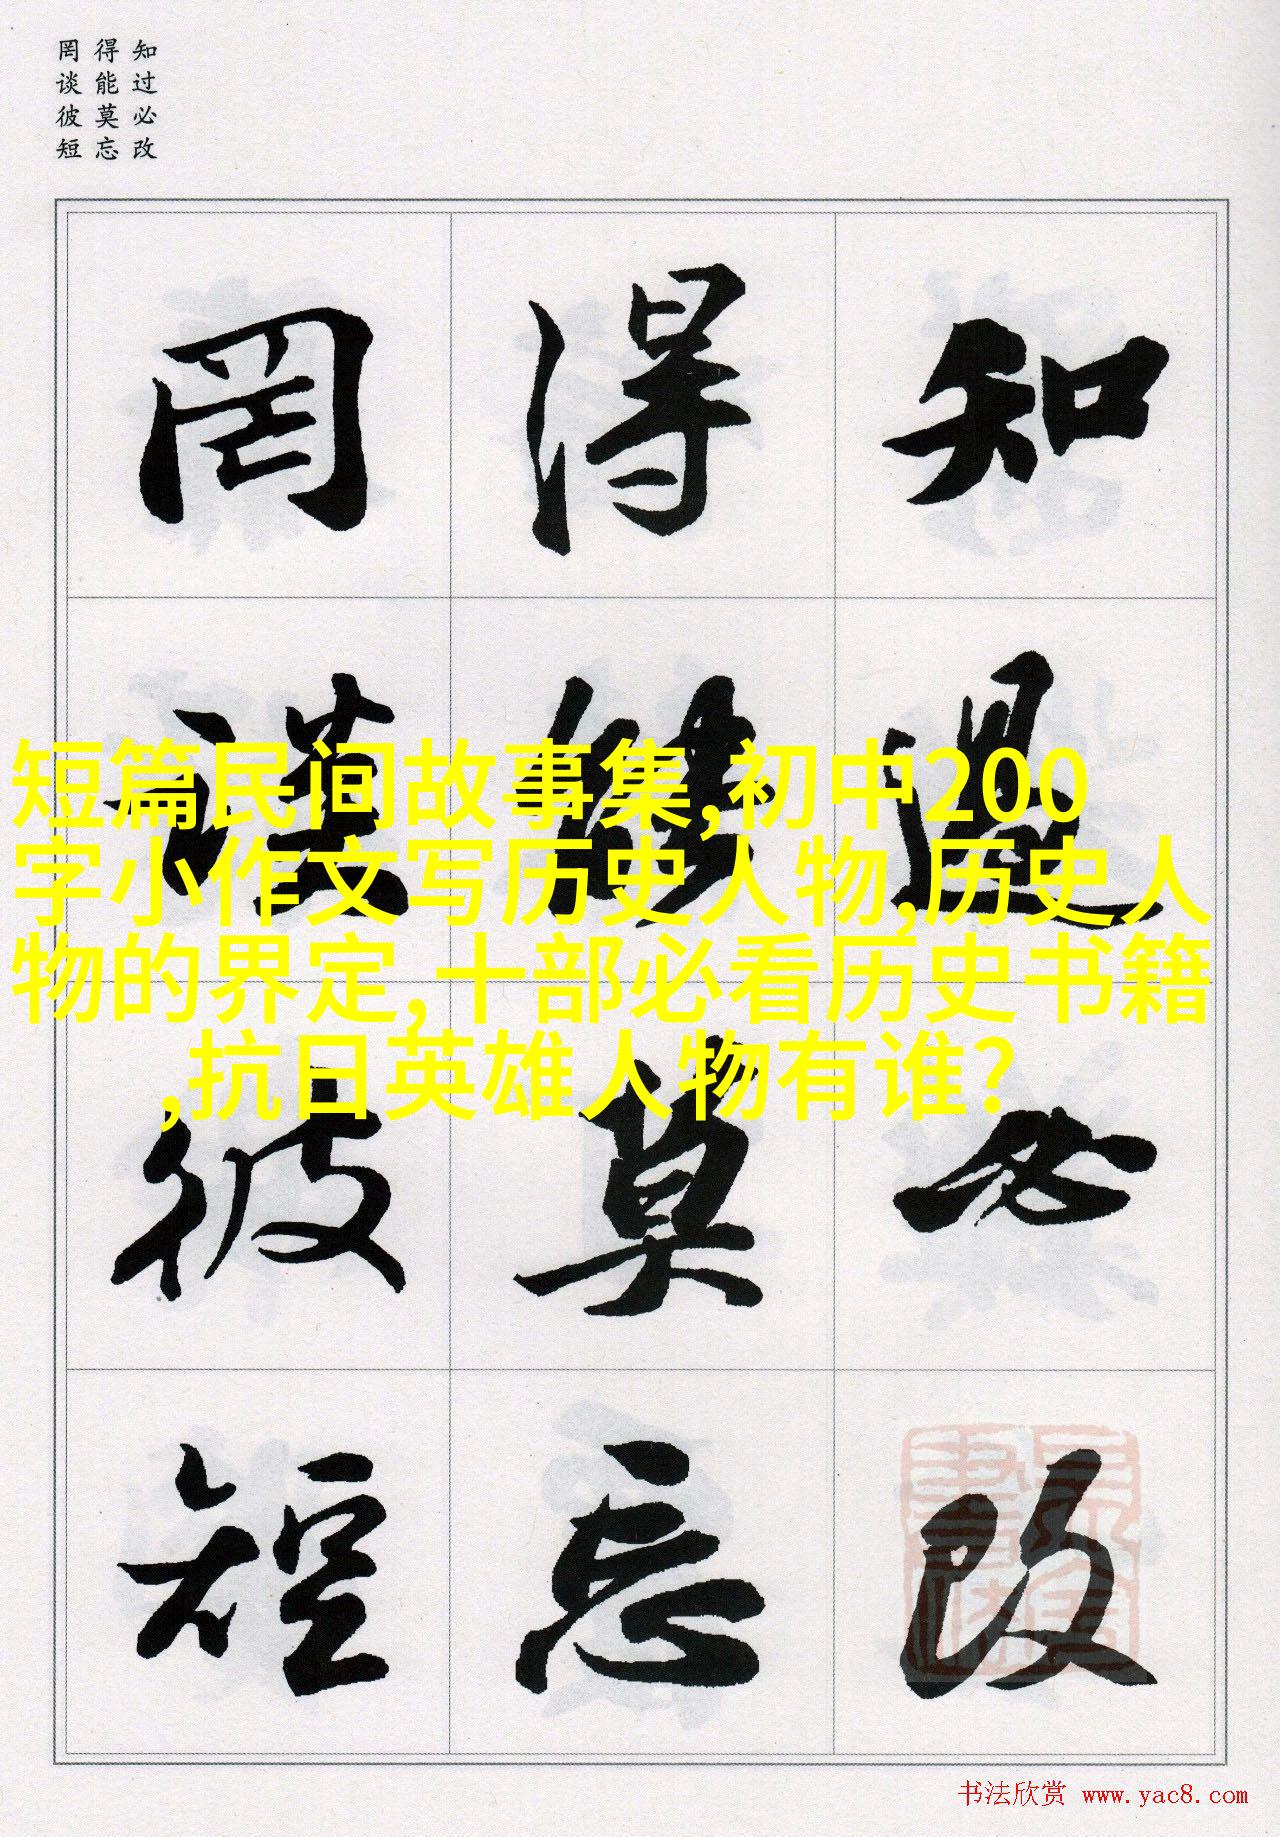 知过必改
得能莫忘
罔谈彼短
知過必改
得能莫忘
罔談彼短
短篇民间故事集,初中200
字小作文写历史人物,历史人
物的界定,十部必看历史书籍
,抗日英雄人物有谁?
书法欣赏 www.yac8.com